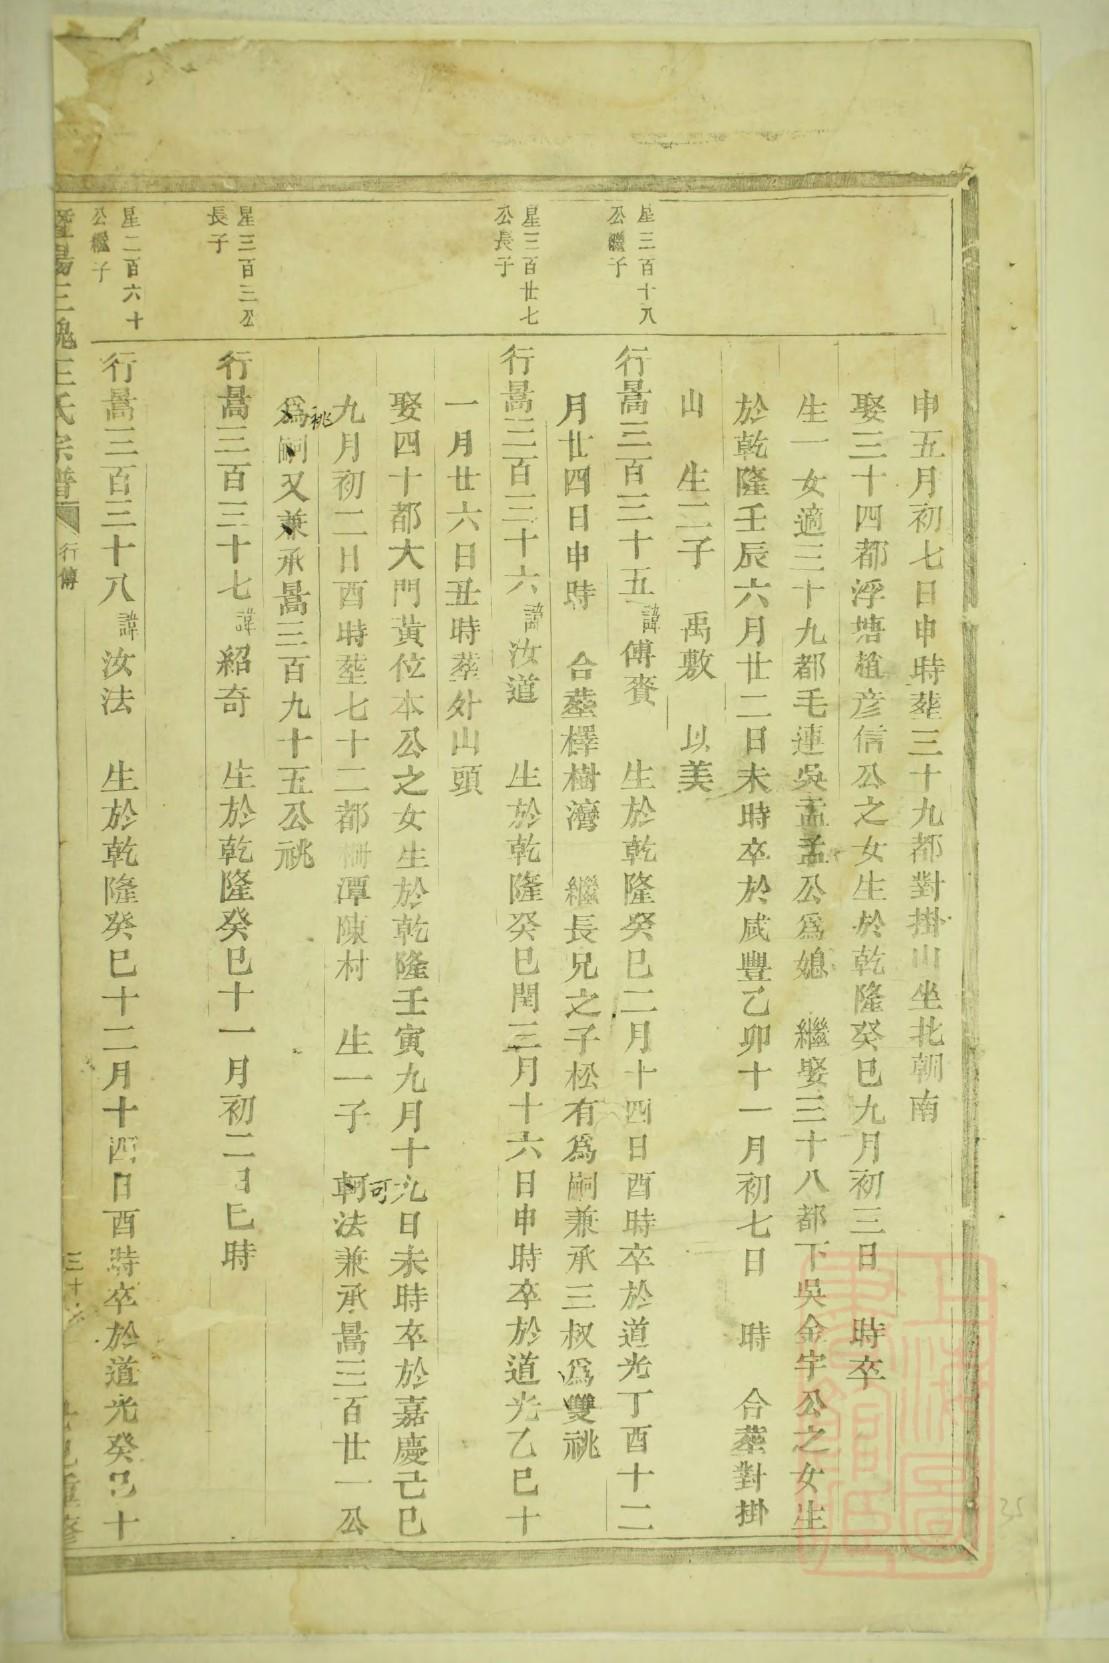 申五月初七日申時塟三十九都對掛山坐北朝南
娶三十四都浮塘植彦信公之女生於乾隆癸巳九月初三日 時卒
生一女適三十九都毛連吳孟孟公爲媳 繼娶三十八都下吳金宇公之女生
於乾隆壬辰六月廿二日未時卒於咸豐乙卯十一月初七日 時 合塟對掛
山 生二子 禹敷 以美
星三百十八
公繼子
行暠三百三十五諱傅賚 生於乾隆癸巳二月十四日酉時卒於道光丁酉十二
月廿四日申時 合塟檡樹灣 繼長兄之子松有爲嗣兼承三叔爲雙祧
星三百廿七
公長子
行暠三百三十六諱汝道 生於乾隆癸巳閏三月十六日申時卒於道光乙巳十
一月廿六日丑時塟外山頭
娶四十都大門黃位本公之女生於乾隆壬寅九月十九日未時卒於嘉慶己巳
九月初二日酉時塟七十二都 潭陳村 生一子 軻可法兼承暠三百廿一公
爲嗣祧又兼承暠三百九十五公祧
星三百三公
長子
行暠三百三十七諱紹奇 生於乾隆癸巳十一月初二日巳時
星二百六十
公繼子
行暠三百三十八諱汝法 生於乾隆癸巳十二月十四日酉時卒於道光癸巳十
暨陽三槐王氏宗譜 行傳 三十 重修
35
上海圖書館藏